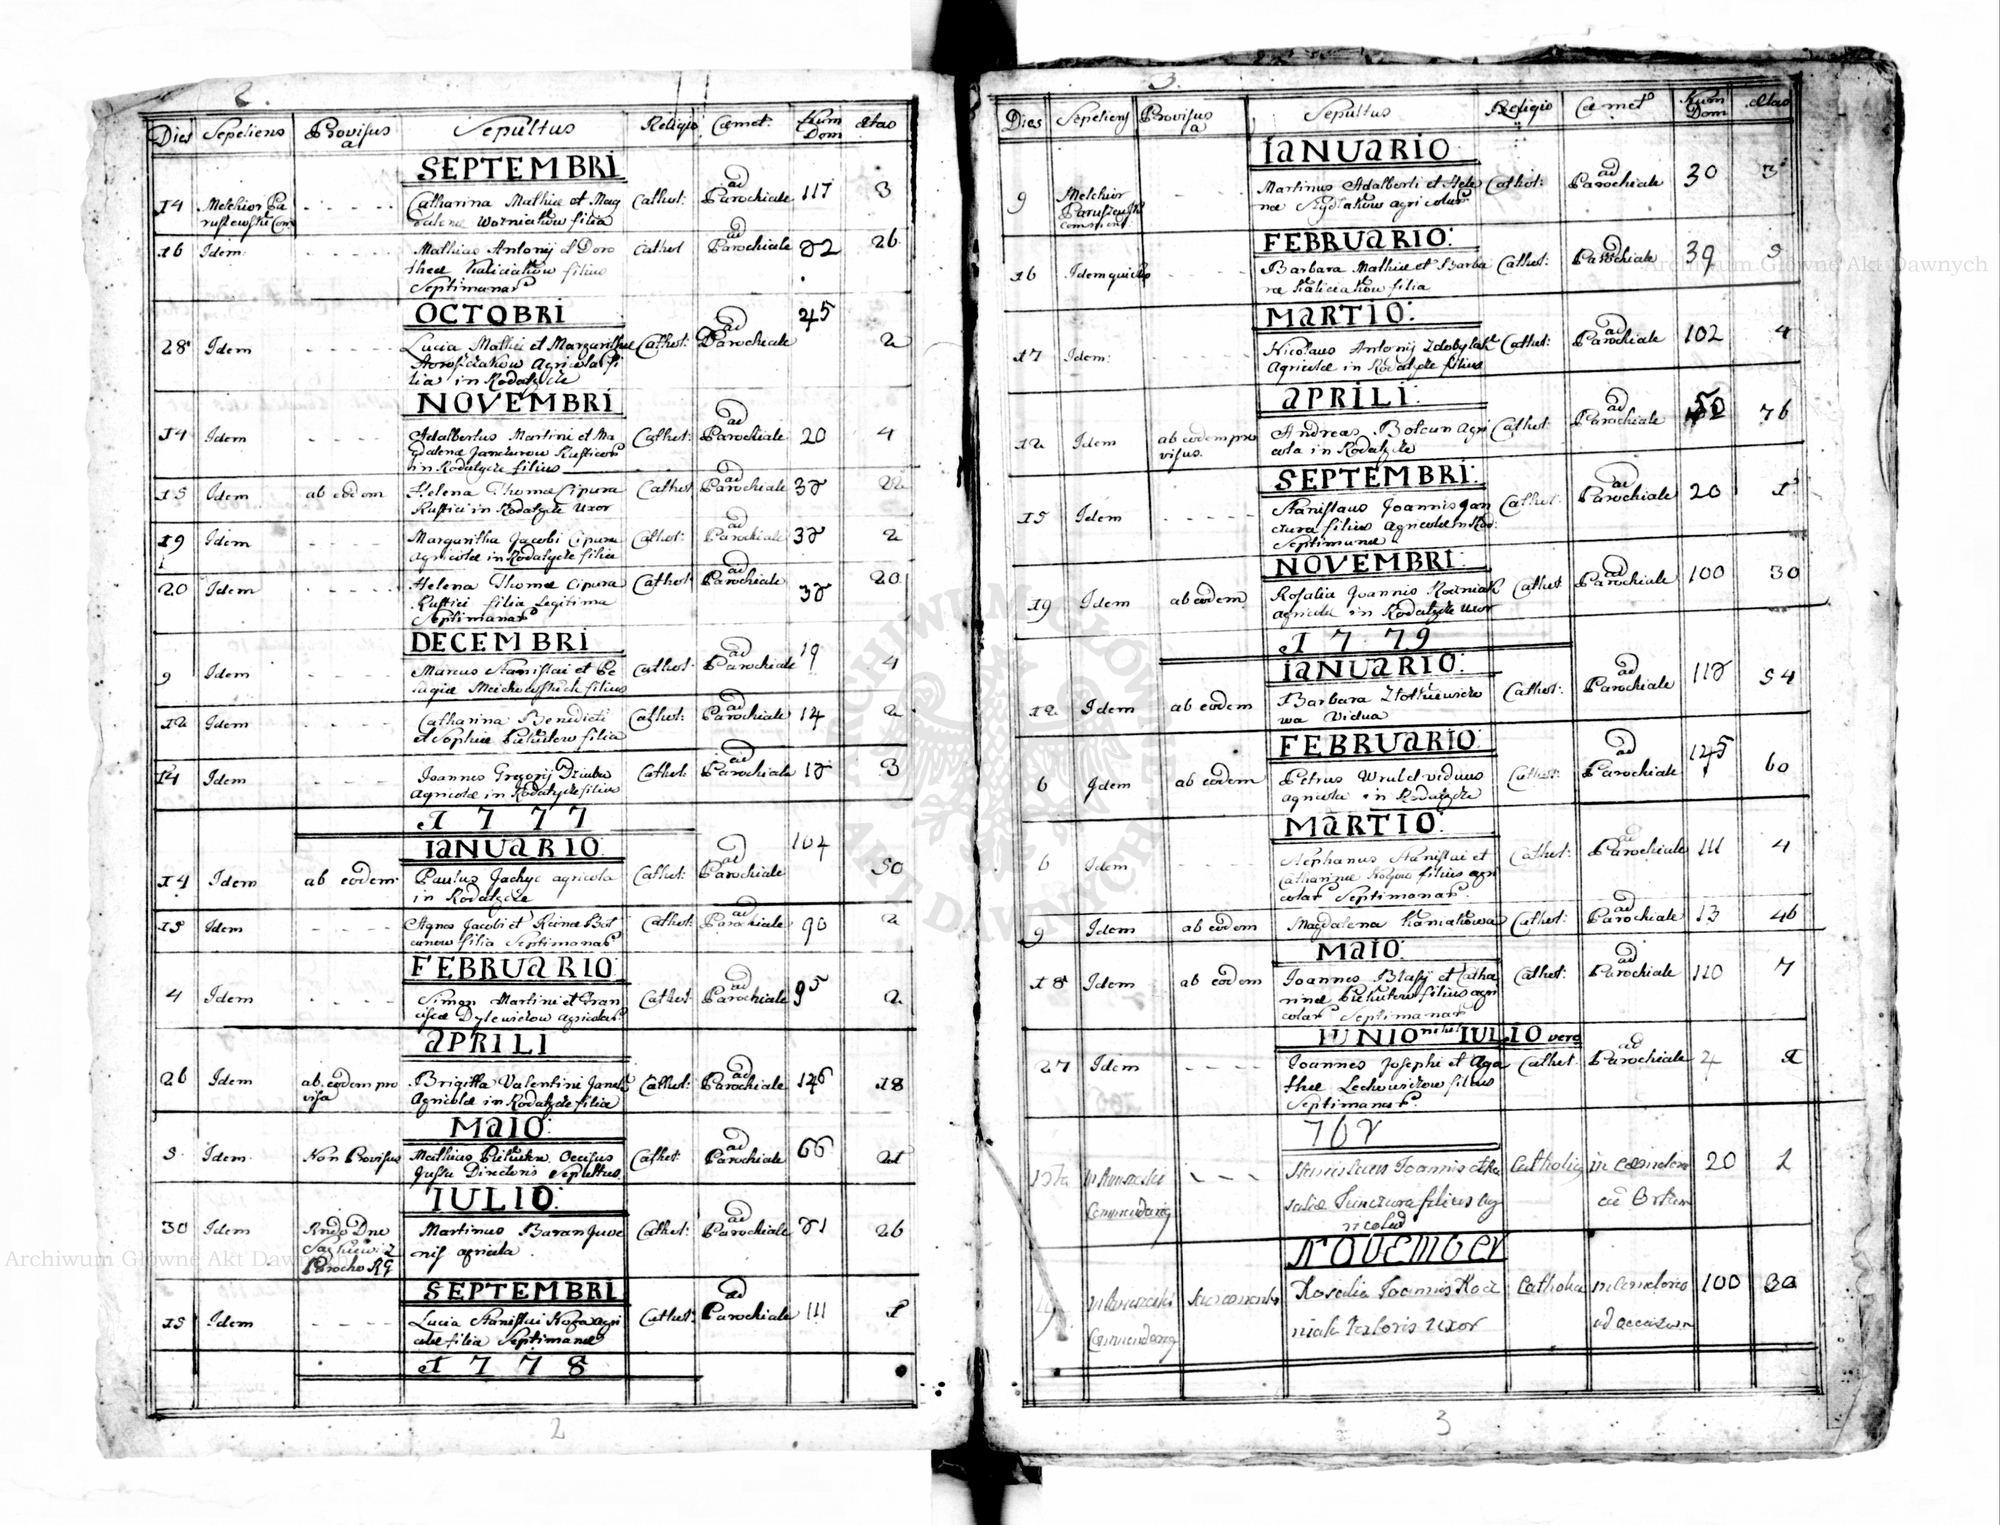 2
Dies Sepeliens Provisus a Sepultus Religio Cæmet: Num Dom Ætas
SEPTEMBRI
14 Melchior Pa
ruszewski Com
- - - - -
Catharina Mathiæ et Mag
dalenæ Wozniakow filia
Cathol: ad Parochiale 117 3
16 Idem - - - - -
Mathias Antonij et Doro
theæ Kaliciakow filius
Septimanar
Cathol ad Parochiale 82 26
OCTOBRI
28 Idem - - - -
Lucia Mathiæ et Margarithæ
Agricolar fi
lia in Rodatycze
Cathol: ad Parochiale 45 2
NOVEMBRI
14 Idem - - - -
Adalbertus Martini et Ma
gdalenæ Janczurow Rusticor
in Rodatycze filius
Cathol: ad Parochiale 20 4
15 Idem ab eodem
Helena Thomæ Cipura
Rustici in Rodatycze Uxor
Cathol ad Parochiale 38 22
19 Idem - - - -
Margaritha Jacobi Cipura
Agricolæ in Rodatycze filia
Cathol: ad Parochiale 38 2
20 Idem - - - - -
Helena Thomæ Cipura
Rustici filia Legitima
Septimanar
Cathol: ad Parochiale 38 20
DECEMBRI
9 Idem - - - -
Marcus Stanislai et Pe
lagiæ filius
Cathol: ad Parochiale 19 4
12 Idem - - - -
Catharina Benedicti
et Sophiæ filia
Cathol: ad Parochiale 14 2
14 Idem - - - -
Joannes Gregorij Dziuba
Agricolæ in Rodatycze filius
Cathol: ad Parochiale 18 3
1777
IANUARIO
14 Idem ab eodem
Paulus Jachyc agricola
in Rodatycze
Cathol: ad Parochiale 104 50
15 Idem - - - -
Agnes Jacobi et Reginæ Bot
cunow filia Septimanar
Cathol: ad Parochiale 90 2
FEBRUARIO
4 Idem - - - -
Simon Martini et Fran
ciscæ Dylewiczow Agricolar
Cathol: ad Parochiale 95 2
APRILI
26 Idem ab eodem pro
visa
Brigitta Valentini
Agricolæ in Rodatycze filia
Cathol: ad Parochiale 146 18
MAIO:
5 Idem Non Provisus
Mathias Occisus
Jussu Directoris Sepultus
Cathol: ad Parochiale 66 21
IULIO:
30 Idem Rndo Dno
Parocho RG
Martinus Baran Juve
nis agricola
Cathol: ad Parochiale 81 26
SEPTEMBRI
15 Idem - - - -
Lucia Stanislai Koza agri
colæ filia Septimanar
Cathol: ad Parochiale 111 1
1778
2
3
Dies Sepeliens Provisus a Sepultus Religio Cæmet Num Dom Ætas
IANUARIO
9 Melchior
Paruszewski
commend
- - - -
Martinus Adalberti et Hele
næ agricolar
Cathol: ad Parochiale 30 3
FEBRUARIO:
16 Idem qui supra - - - -
Barbara Mathiæ et Barba
ræ Kaliciakow filia
Cathol: ad Parochiale 39 5
MARTIO:
17 Idem: - - - -
Nicolaus Antonij
Agricolæ in Rodatycze filius
Cathol: ad Parochiale 102 4
APRILI:
12 Idem ab eodem pro
visus.
Andreas Botcun Agri
cola in Rodatycze
Cathol: ad Parochiale 50 76
SEPTEMBRI:
15 Idem - - - -
Stanislaus Joannis Jan
czura filius Agricolæ in Rod:
Septimanæ
Cathol: ad Parochiale 20 1
NOVEMBRI:
19 Idem ab eodem
Rosalia Joannis Kozniak
agricolæ in Rodatycze Uxor
Cathol ad Parochiale 100 30
1779
IANUARIO:
12 Idem ab eodem
Barbara Złotkiewiczo
wa Vidua
Cathol: ad Parochiale 118 54
FEBRUARIO
6 Idem ab eodem
Petrus viduus
agricola in Rodatycze
Cathol: ad Parochiale 145 60
MARTIO:
6 Idem - - - -
Stephanus Stanislai et
Catharinæ Kozow filius agri
colar Septimanar
Cathol: ad Parochiale 111 4
9 Idem ab eodem
Magdalena Kaniakowa
Cathol: ad Parochiale 13 46
MAIO:
18 Idem ab eodem
Joannes Blasij et Catha
rinæ filius agri
colar Septimanar
Cathol: ad Parochiale 110 7
IUNIO nihil IULIO vero
27 Idem - - - -
Joannes Josephi et Aga
thæ Lechowiczow filius
Septimanar
Cathol ad Parochiale 4 1
Commendarius - - -
Stanislaus Joannis et Ro
saliæ Janczura filius ag
ricolæ
Catholica in Cæmeterio
ad Ortum
20 1
NOVEMBER
Commendarius
Rosalia Joannis Koz
niak Uxor
Catholica in Cæmeterio
ad occasum
100 30
3
Archiwum Główne Akt Dawnych
Archiwum Główne Akt Dawnych
ARCHIWUM GŁÓWNE AKT DAWNYCH